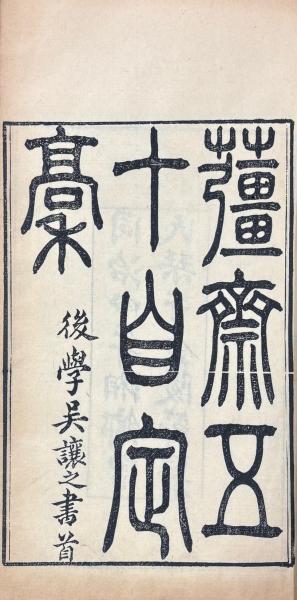 薑齋五
十自定
稾
後學吳讓之書首